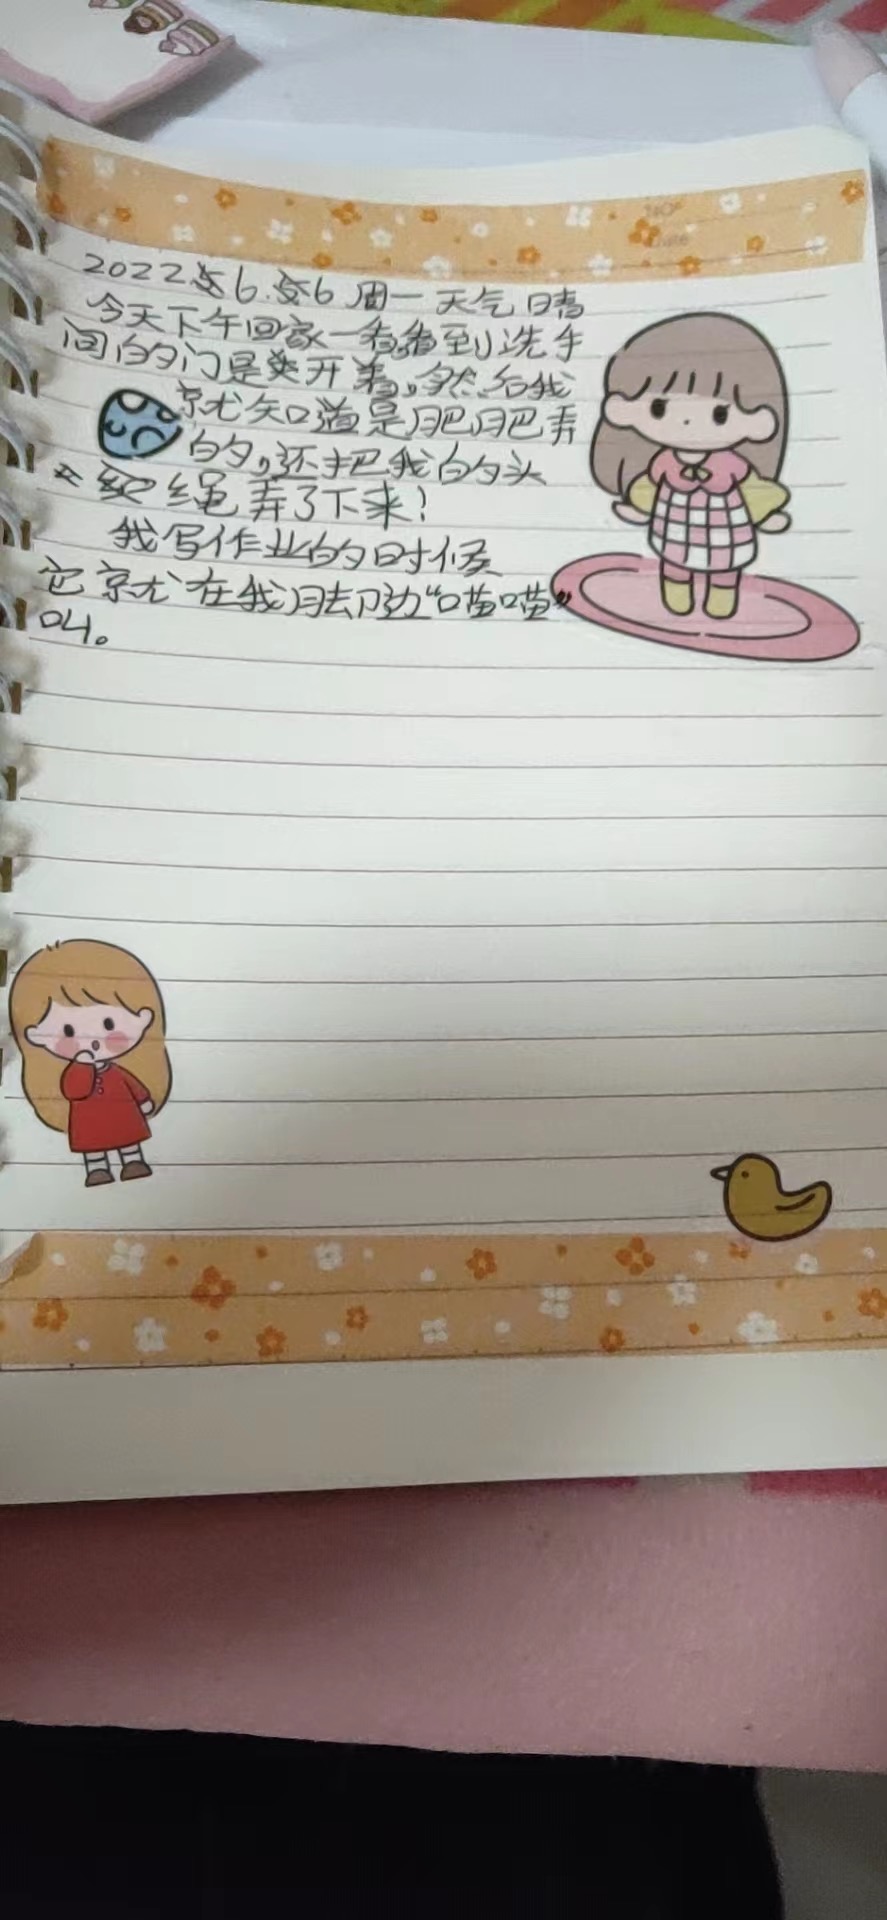 No:
Date
2022 6.6 周一 天气晴
今天下午回家一看,看到洗手
间的门是开着,然后我
就知道是肥肥弄
的,还把我的头
绳弄了下来!
我写作业的时候
它就在我脚边“喵喵”
叫。